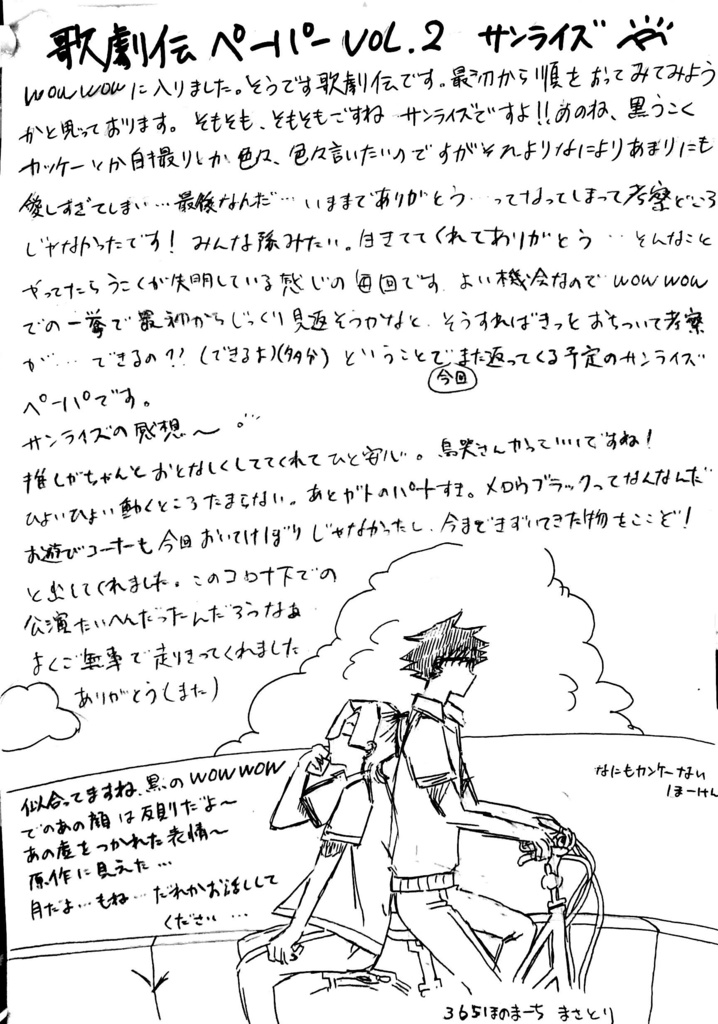 歌劇伝 ペーパー VOL.2 サンライズ
wowwowに入りました。そうです歌劇伝です。最初から順をおってみてみよう
かと思っております。そもそも、そもそもですね サンライズですよ!!あのね、黒うこく
カッケーとか自き最りとか色々、色々言いたいのですがそれよりなによりあまりにも
愛しすぎてしまい…最後なんだ…いままでありがとう…ってなってしまって考察どころ
じゃなかったです! みんな隊みたい。生きててくれてありがとう…そんなこと
やってたらうこくが失明している感じの毎回です。よい機会なのでwowwow
での一挙で最初からじっくり見返そうかなと、そうすればきっとおちついて考察
が…できるの?!(できるよ)(多分) ということでまた返ってくる予定のサンライズ
今回
ペーパです。
サンライズの感想〜
推しがちゃんとおとなしくしててくれてひと安心。鳥哭さんかっていいですね!
ひょいひょい動くところたまらない。あとガトのパートすき。メロウブラックってなんなんだ
お遊びコーナーも今回おいてけぼりじゃなかったし、今まできずいてきた物をここど!
と出してくれました。このコロナ下での
公演たいへんだったんだろうなぁ
よくご無事で走りきってくれました
ありがとう(また)
似合ってますね、黒のwowwow
でのあの顔は反則だよ〜
あの虚をつかれた表情〜
原作に見えた…
月だよ…もね…だれかお話しして
ください…
なにもカンケーない
ほーけん
365ほのまーち まさとり